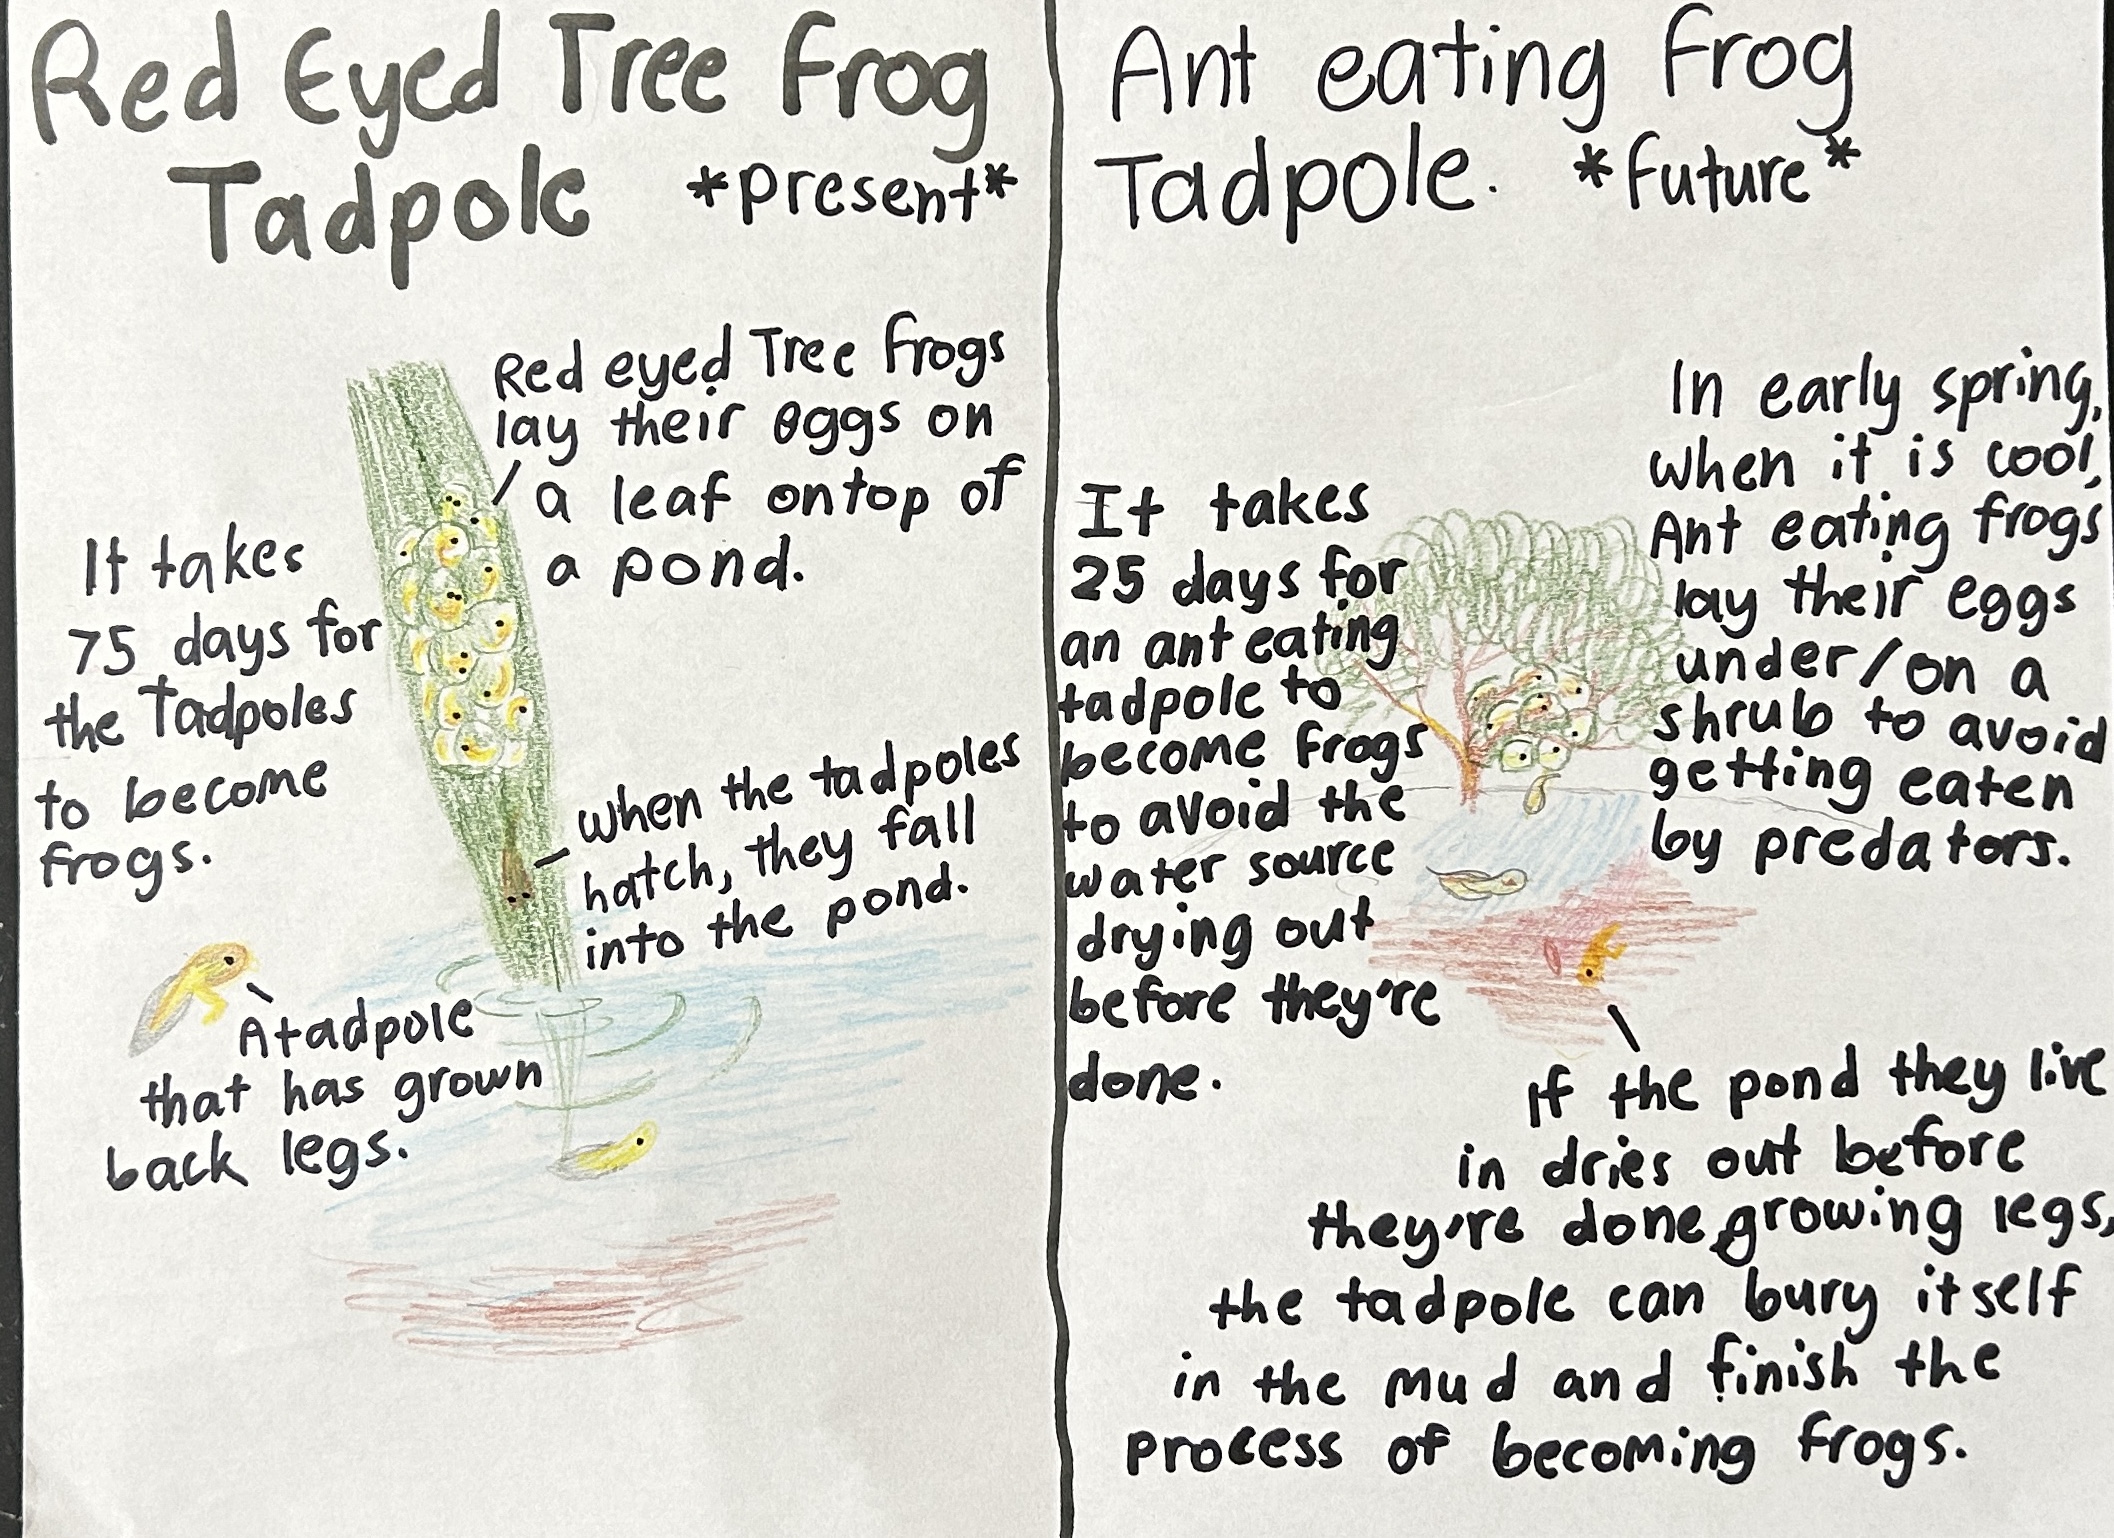 Red Eyed Tree Frog
Tadpole *present*
Red eyed Tree frogs
lay their eggs on
a leaf ontop of
a pond.
It takes
75 days for
the Tadpoles
to become
frogs.
when the tadpoles
hatch, they fall
into the pond.
A tadpole
that has grown
back legs.
Ant eating frog
Tadpole. *future*
In early spring,
when it is cool,
Ant eating frogs
lay their eggs
under/on a
shrub to avoid
getting eaten
by predators.
It takes
25 days for
an ant eating
tadpole to
become frogs
to avoid the
water source
drying out
before they're
done.
If the pond they live
in dries out before
they're done growing legs,
the tadpole can bury itself
in the mud and finish the
process of becoming frogs.